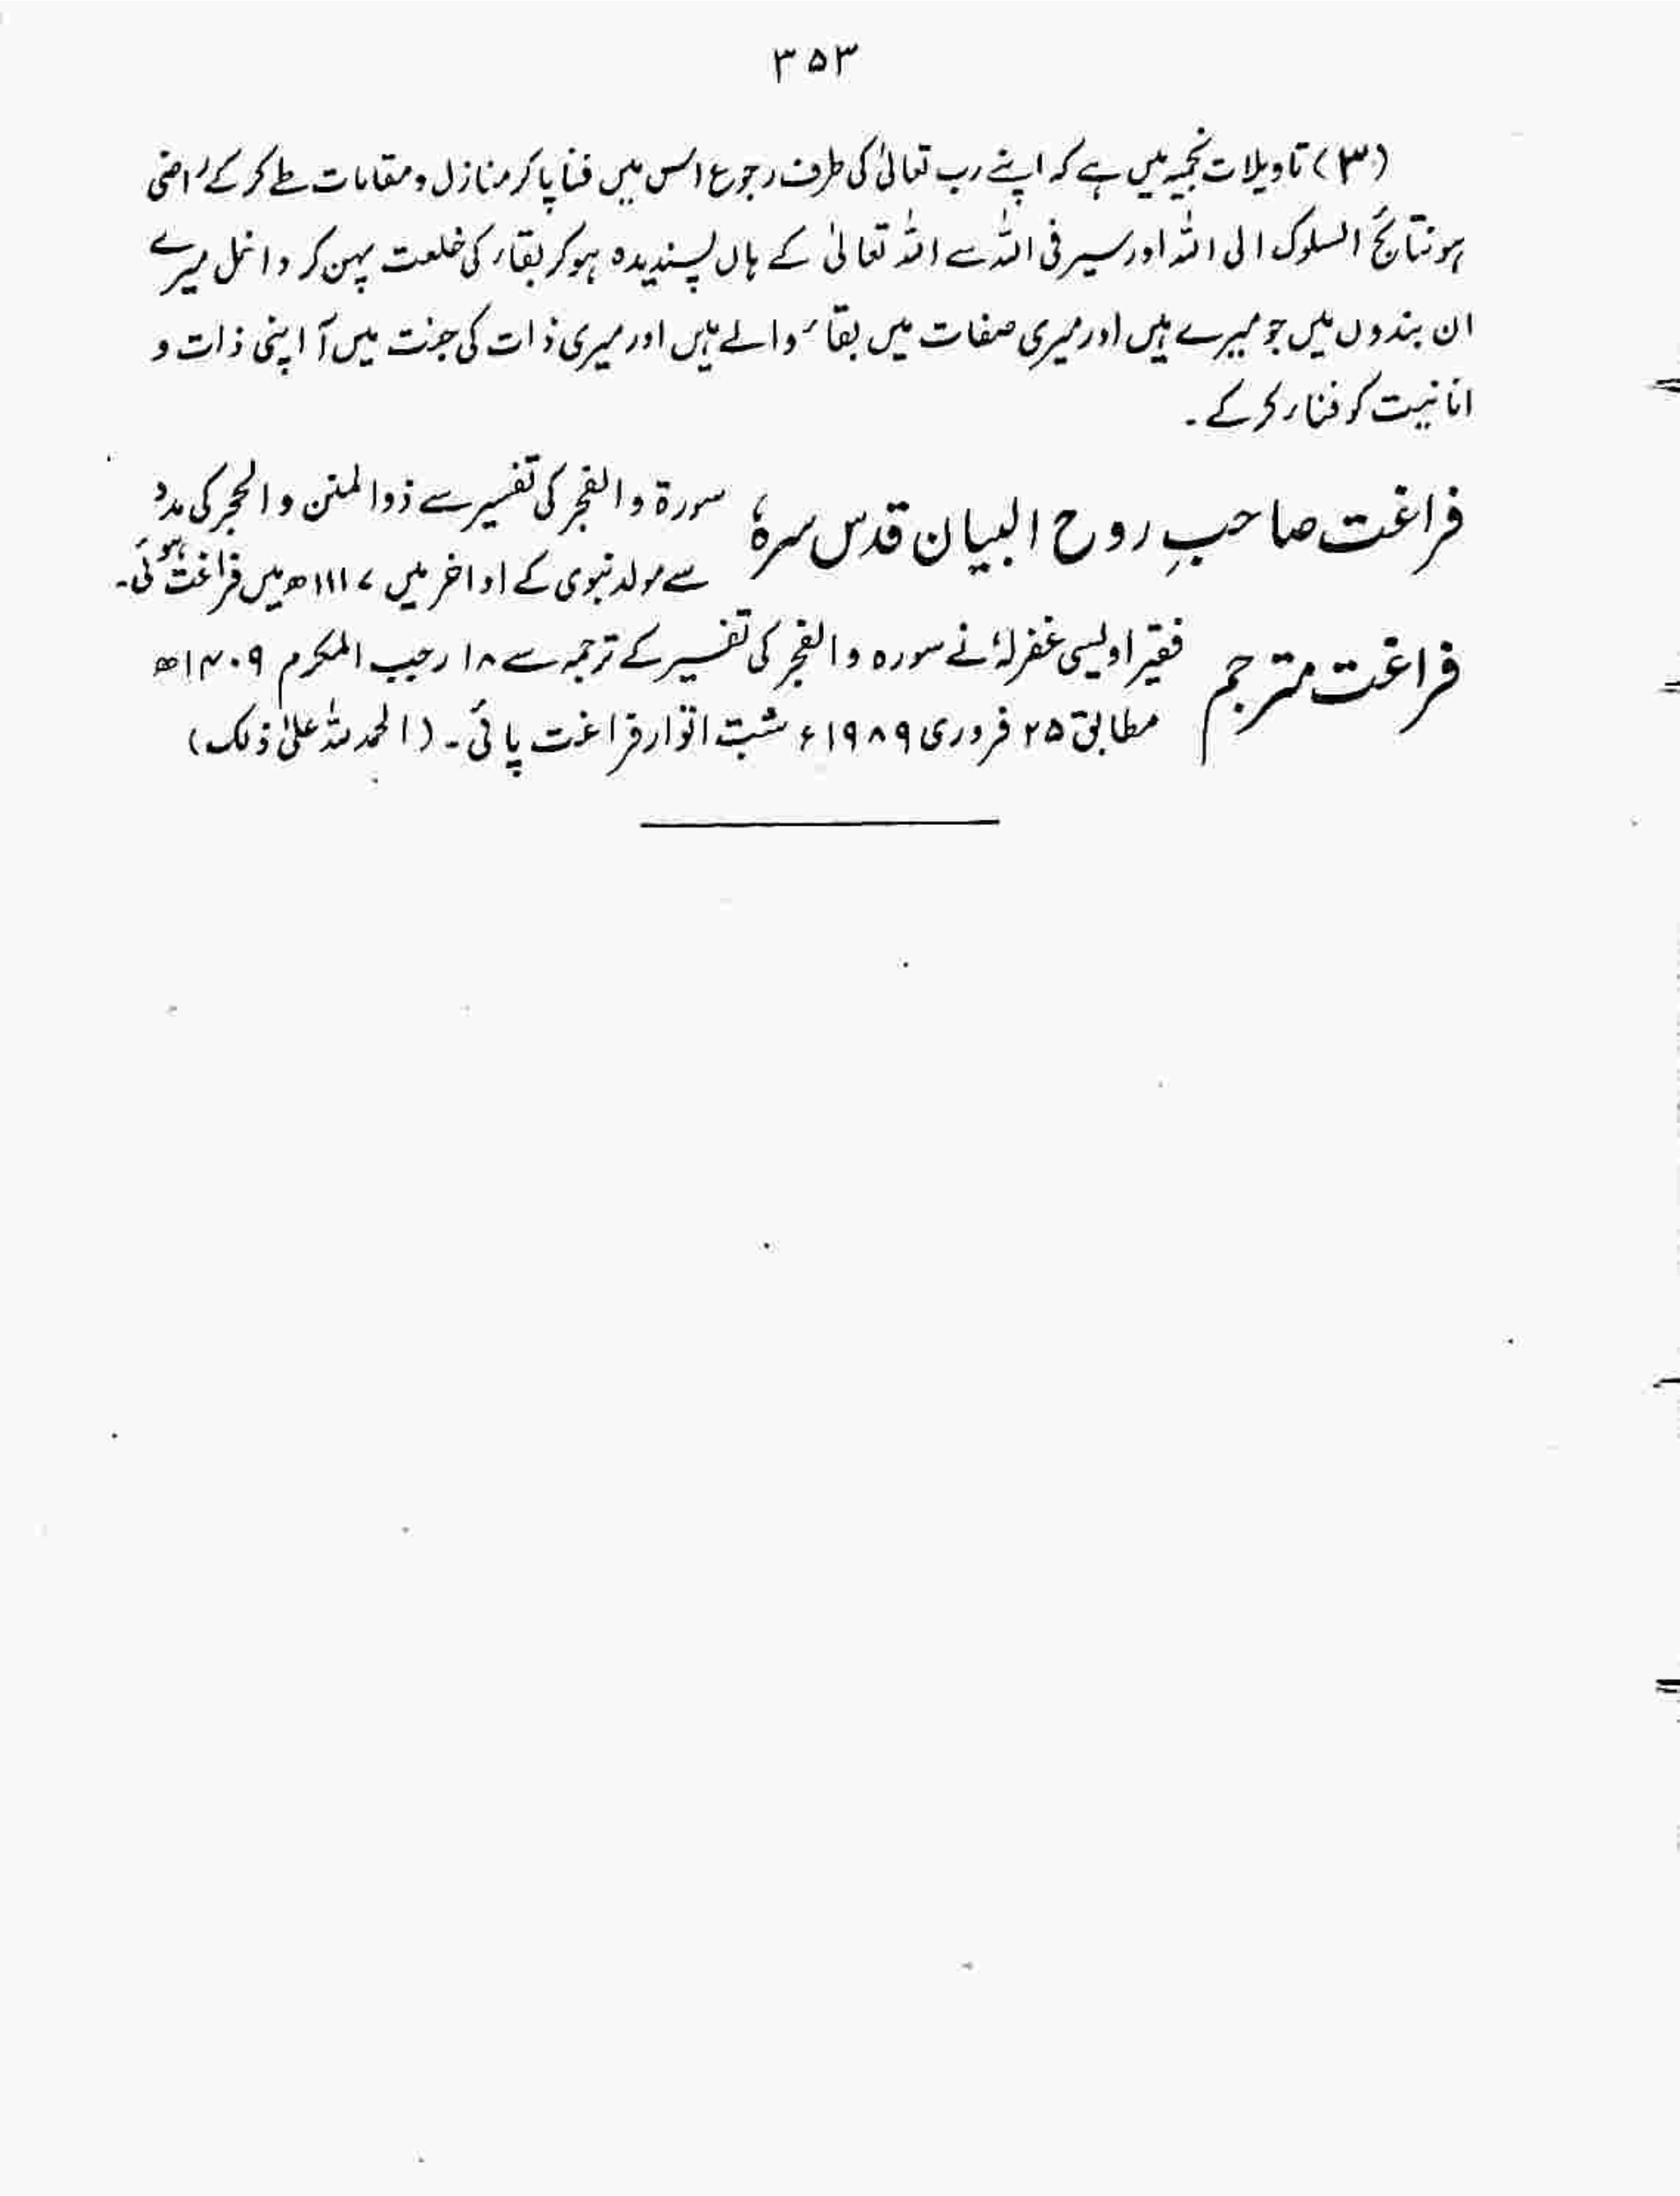 ۳۵۳
(۳) تاویلات نجمیہ میں ہے کہ اپنے رب تعالیٰ کی طرف رجوع اس میں فنا پا کر منازل و مقامات طے کر کے راضی
ہو نتائج السلوک الی اللہ اور سیر فی اللہ سے اللہ تعالیٰ کے ہاں پسندیدہ ہو کر بقاء کی خلعت پہن کر داخل میرے
ان بندوں میں جو میرے ہیں اور میری صفات میں بقاء والے ہیں اور میری ذات کی جنت میں آ اپنی ذات و
انانیت کو فناء کر کے ۔
فراغت صاحبِ روح البیان قدس سرہٗ سورۃ والفجر کی تفسیر سے ذوالمنن والحجر کی مدد
سے مولد نبوی کے اواخر میں ۱۱۱۷ھ میں فراغت ہوئی۔
فراغت مترجم فقیر اویسی غفرلہٗ نے سورہ والفجر کی تفسیر کے ترجمہ سے ۱۸ رجب المکرم ۱۴۰۹ھ
مطابق ۲۵ فروری ۱۹۸۹ء شب اتوار فراغت پائی۔ (الحمد للہ علیٰ ذلک)